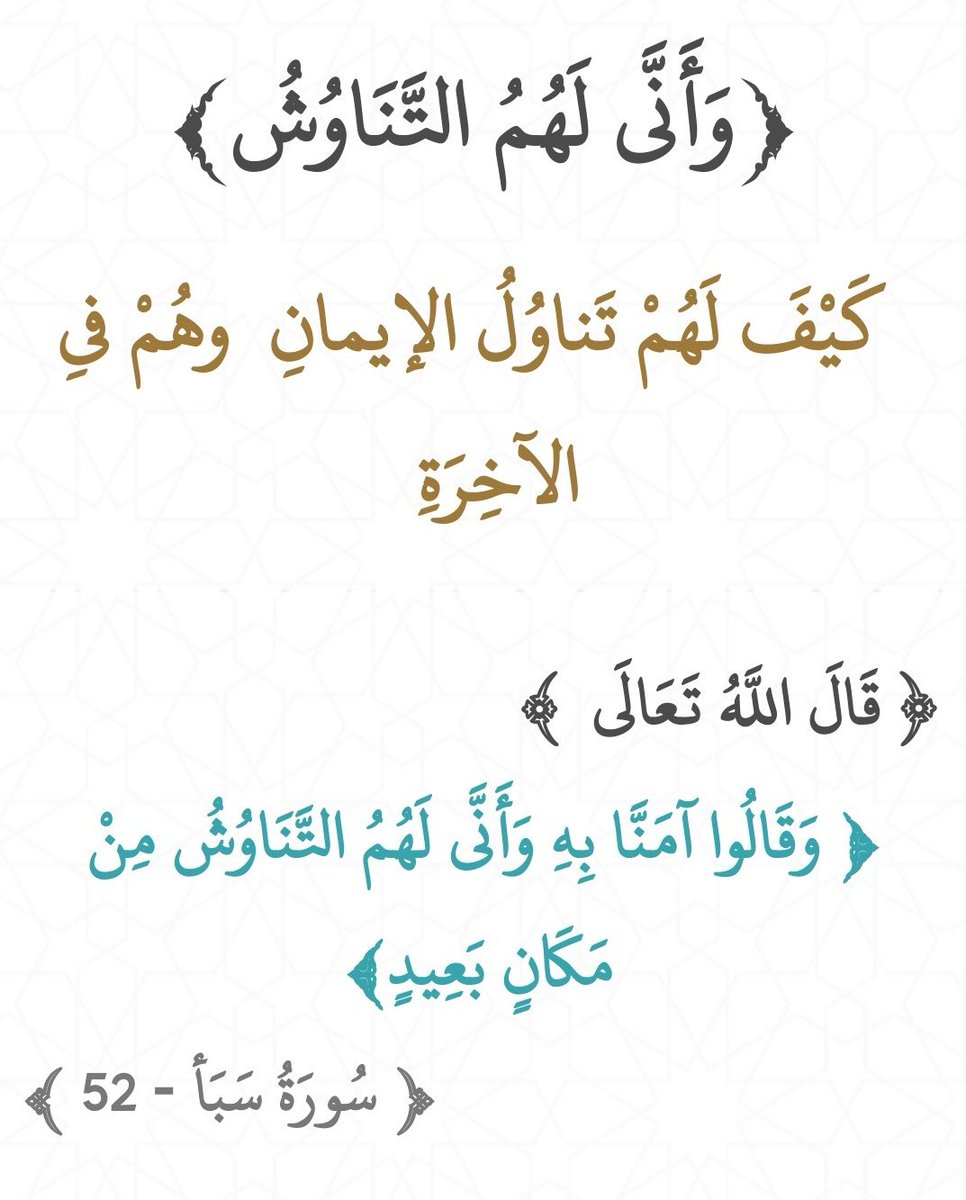 ﴿وَأَنَّى لَهُمُ التَّنَاوُشُ﴾
كَيْفَ لَهُمْ تَناوُلُ الإِيمانِ وهُمْ فيِ
الآخِرَةِ
﴿ قَالَ اللَّهُ تَعَالَى ﴾
﴿ وَقَالُوا آمَنَّا بِهِ وَأَنَّى لَهُمُ التَّنَاوُشُ مِنْ
مَكَانٍ بَعِيدٍ﴾
﴿ سُورَةُ سَبَأ - 52 ﴾